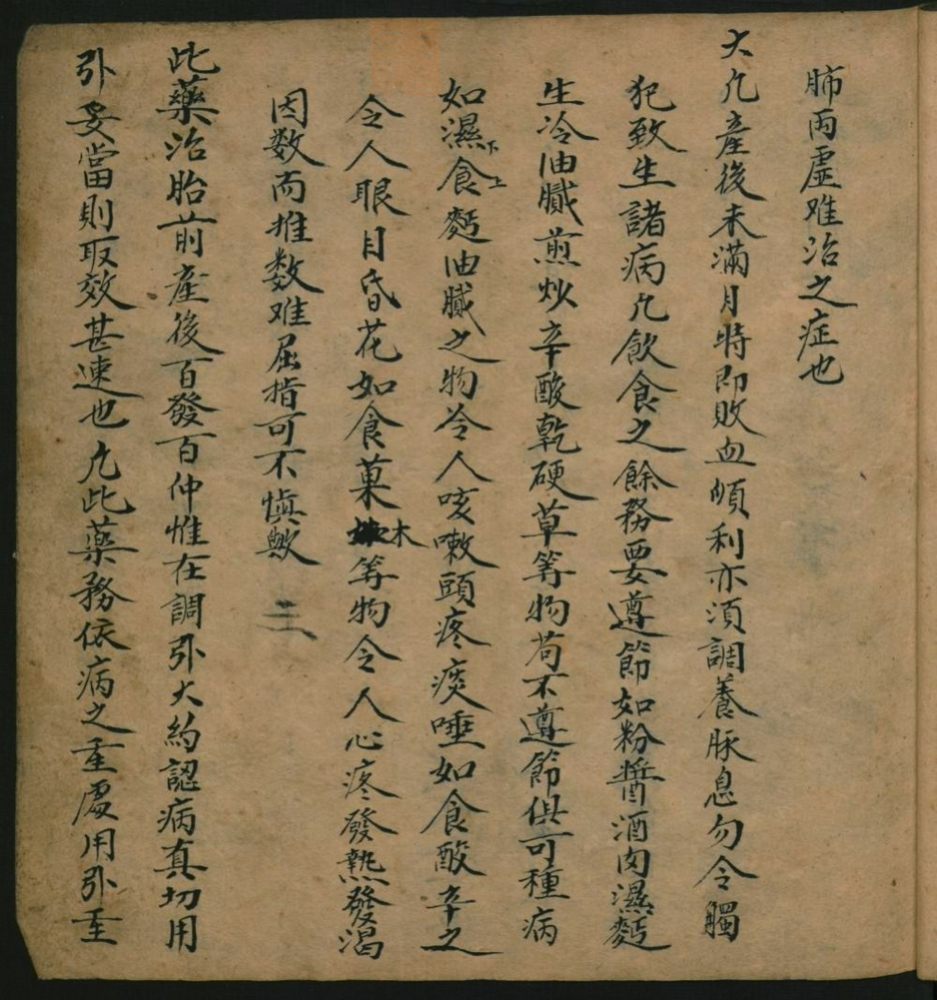 肺両虛难治之症也
大凢產後未滿月時即敗血順利亦湏調養脉息勿令觸
犯致生諸病凢飲食之餘務要遵節如粉醬酒肉濕麪
生冷油膩煎炒辛酸乾硬草等物苟不遵節俱可種病
如濕下食上麪油膩之物令人咳嗽頭疼痰唾如食酸辛之
令人眼目昏花如食菓木等物令人心疼發熱發渴
因数而推数难屈指可不慎歟
此藥治胎前產後百發百仲惟在調引大約認病真切用
引妥當則取效甚速也凢此藥務依病之重處用引至